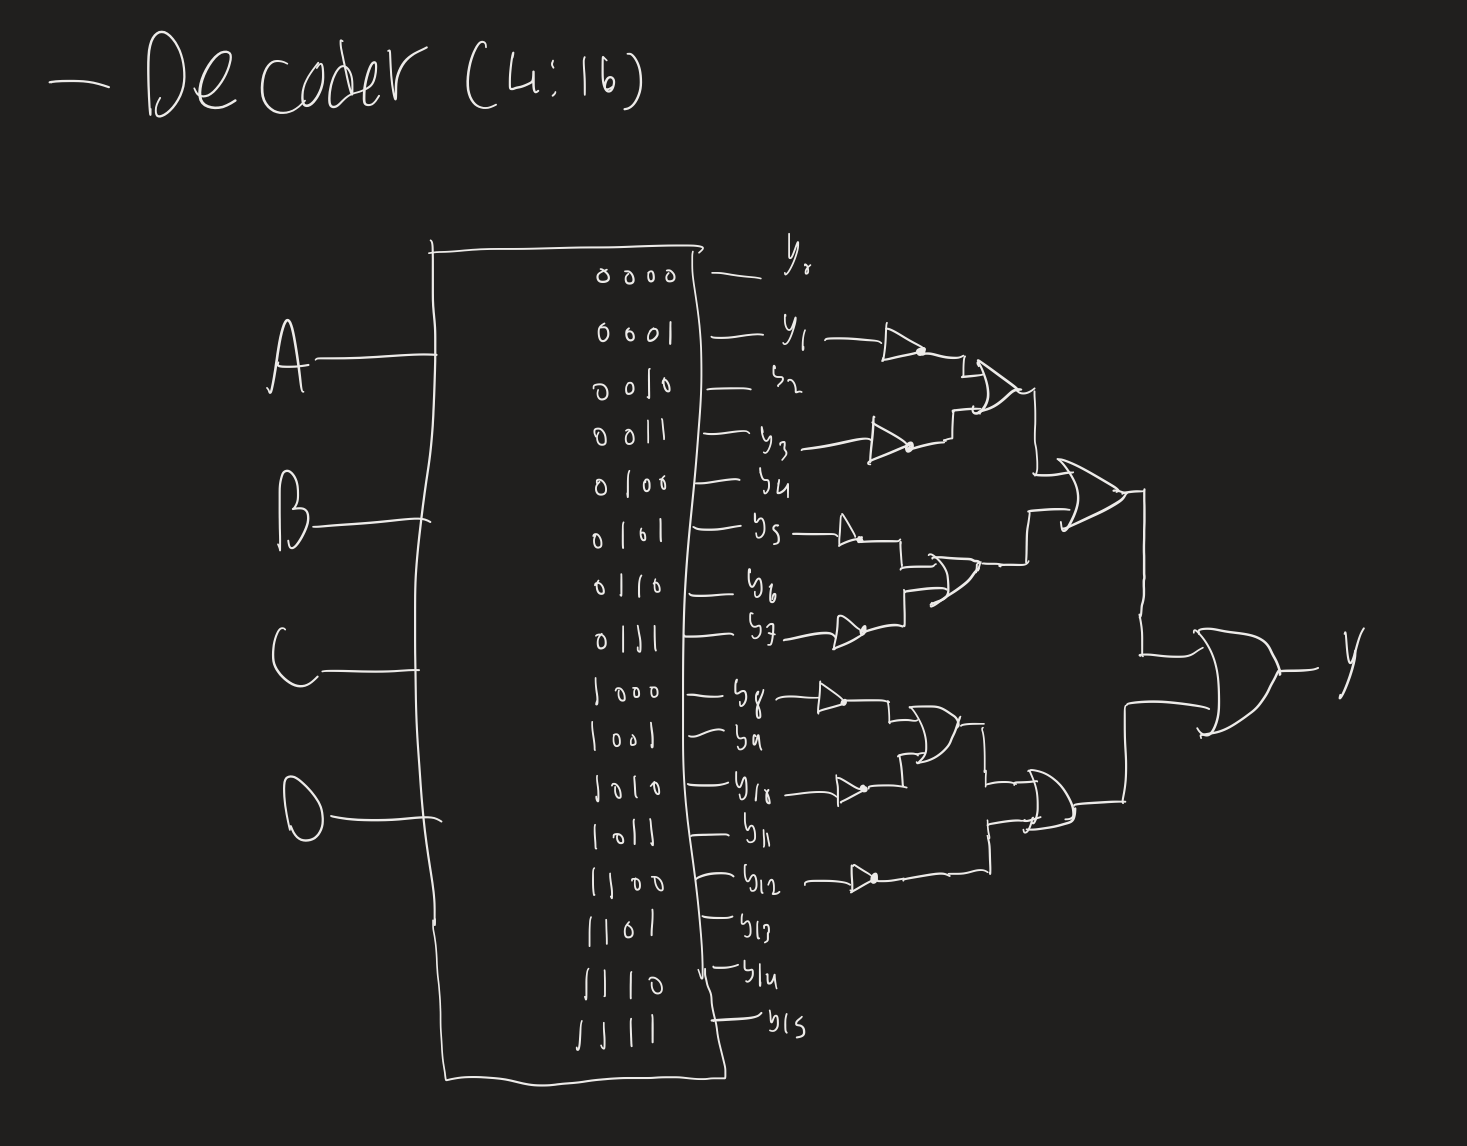 — Decoder (4:16)
0000 y0
0001 y1
A
0010 y2
0011 y3
0100 y4
B
0101 y5
0110 y6
0111 y7
C
1000 y8
Y
1001 y9
1010 y10
D
1011 y11
1100 y12
1101 y13
1110 y14
1111 y15